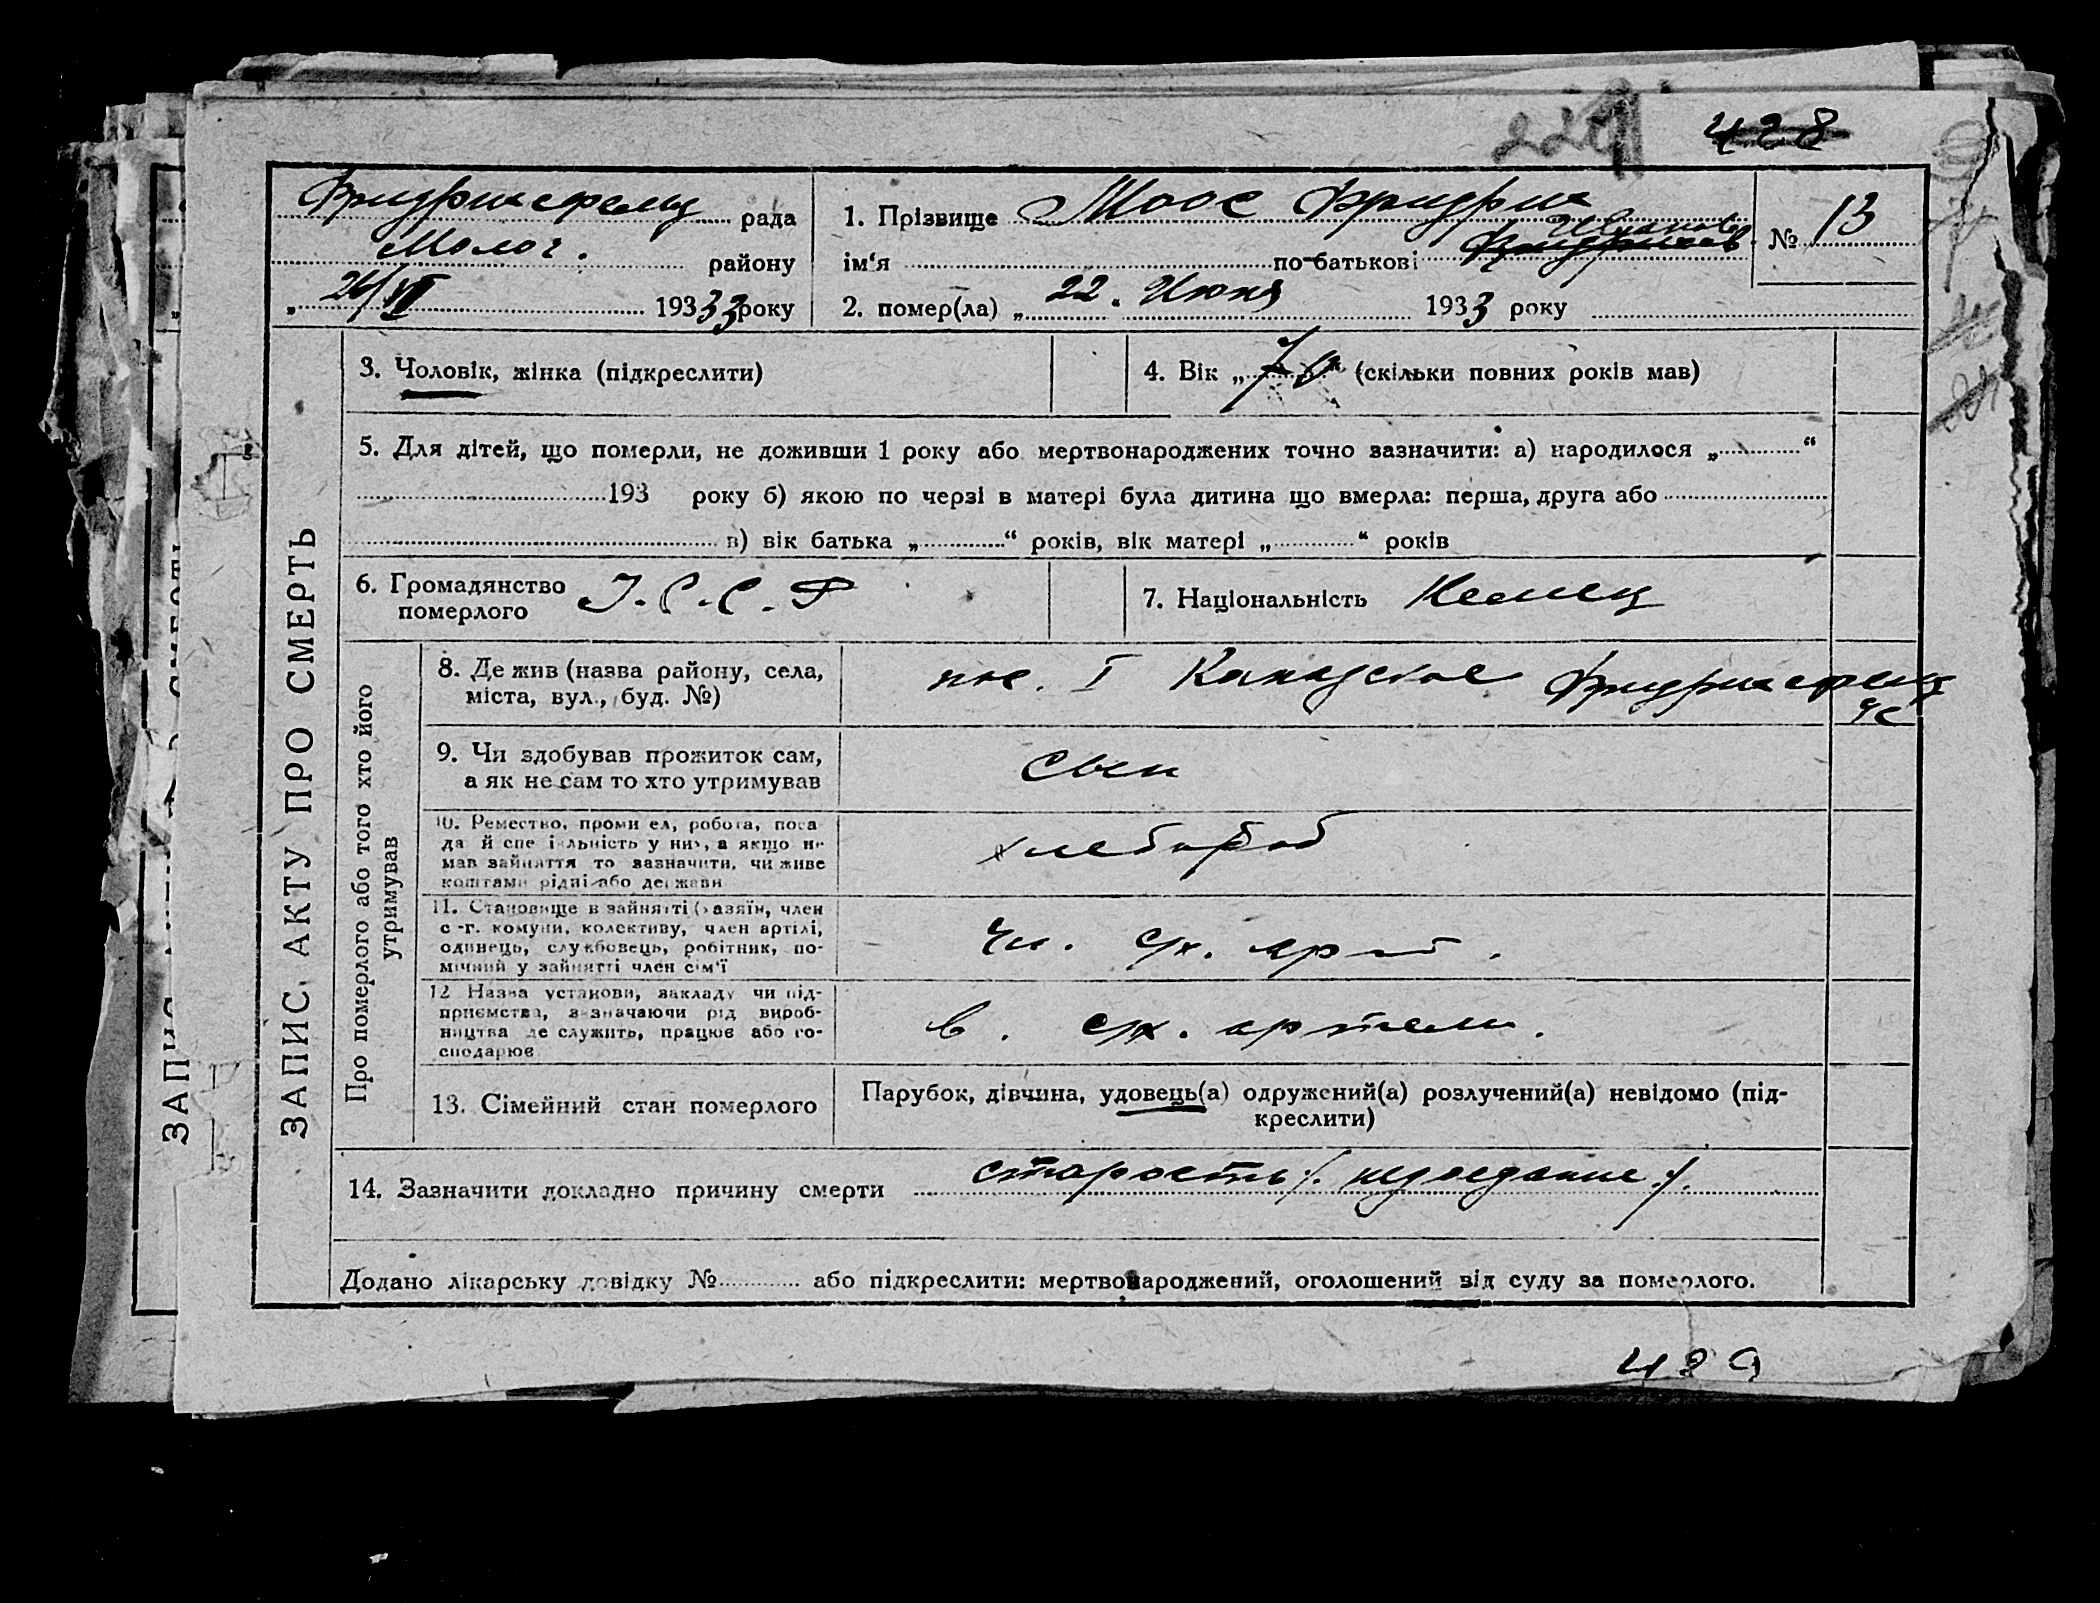 428
Фридрихсфельд рада
Молоч. району
„ 26/VI 1933 33 року
1. Прізвище Моос Фридрих
Иванов.
ім‘я по-батькові
№ 13
2. помер(ла) „ 22 “ Июня 1933 року
3. Чоловік, жінка (підкреслити)
4. Вік „ “ (скільки повних років мав)
5. Для дітей, що померли, не доживши 1 року або мертвонароджених точно зазначити: а) народилося „ “
193 року б) якою по черзі в матері була дитина що вмерла: перша, друга або
в) вік батька „ “ років, вік матері „ “ років
6. Громадянство
померлого
У.С.С.Р
7. Національність Немец
ЗАПИС АКТУ ПРО СМЕРТЬ
Про померлого або того хто його
утримував
8. Де жив (назва району, села,
міста, вул., буд. №)
пос. I Канадское Фридрихсфельд
с/с
9. Чи здобував прожиток сам,
а як не сам то хто утримував
сын
10. Ремество, промисел, робота, поса-
да й спеціяльність у них, а якщо не
мав зайняття то зазначити, чи живе
коштами рідні або держави
хлебороб
11. Становище в зайнятті (хазяїн, член
с.-г. комуни, колективу, член артілі,
одинець, службовець, робітник, по-
мічний у зайнятті член сім‘ї
чл. с/х. арт.
12 Назва установи, закладу чи під-
приємства, зазначаючи рід вироб-
ництва де служить, працює або го-
сподарює
в. с/х. артели.
13. Сімейний стан померлого
Парубок, дівчина, удовець(а) одружений(а) розлучений(а) невідомо (під-
креслити)
14. Зазначити докладно причину смерти старость /. недоедание ./.
Додано лікарську довідку № або підкреслити: мертвонароджений, оголошений від суду за померлого.
429